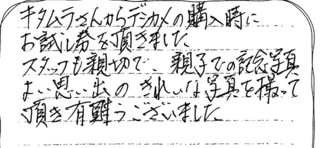 キタムラさんからデジカメの購入時に
お試し券を頂きました
スタッフも親切で、親子での記念写真
よい思い出のきれいな写真を撮って
頂き有難うございました